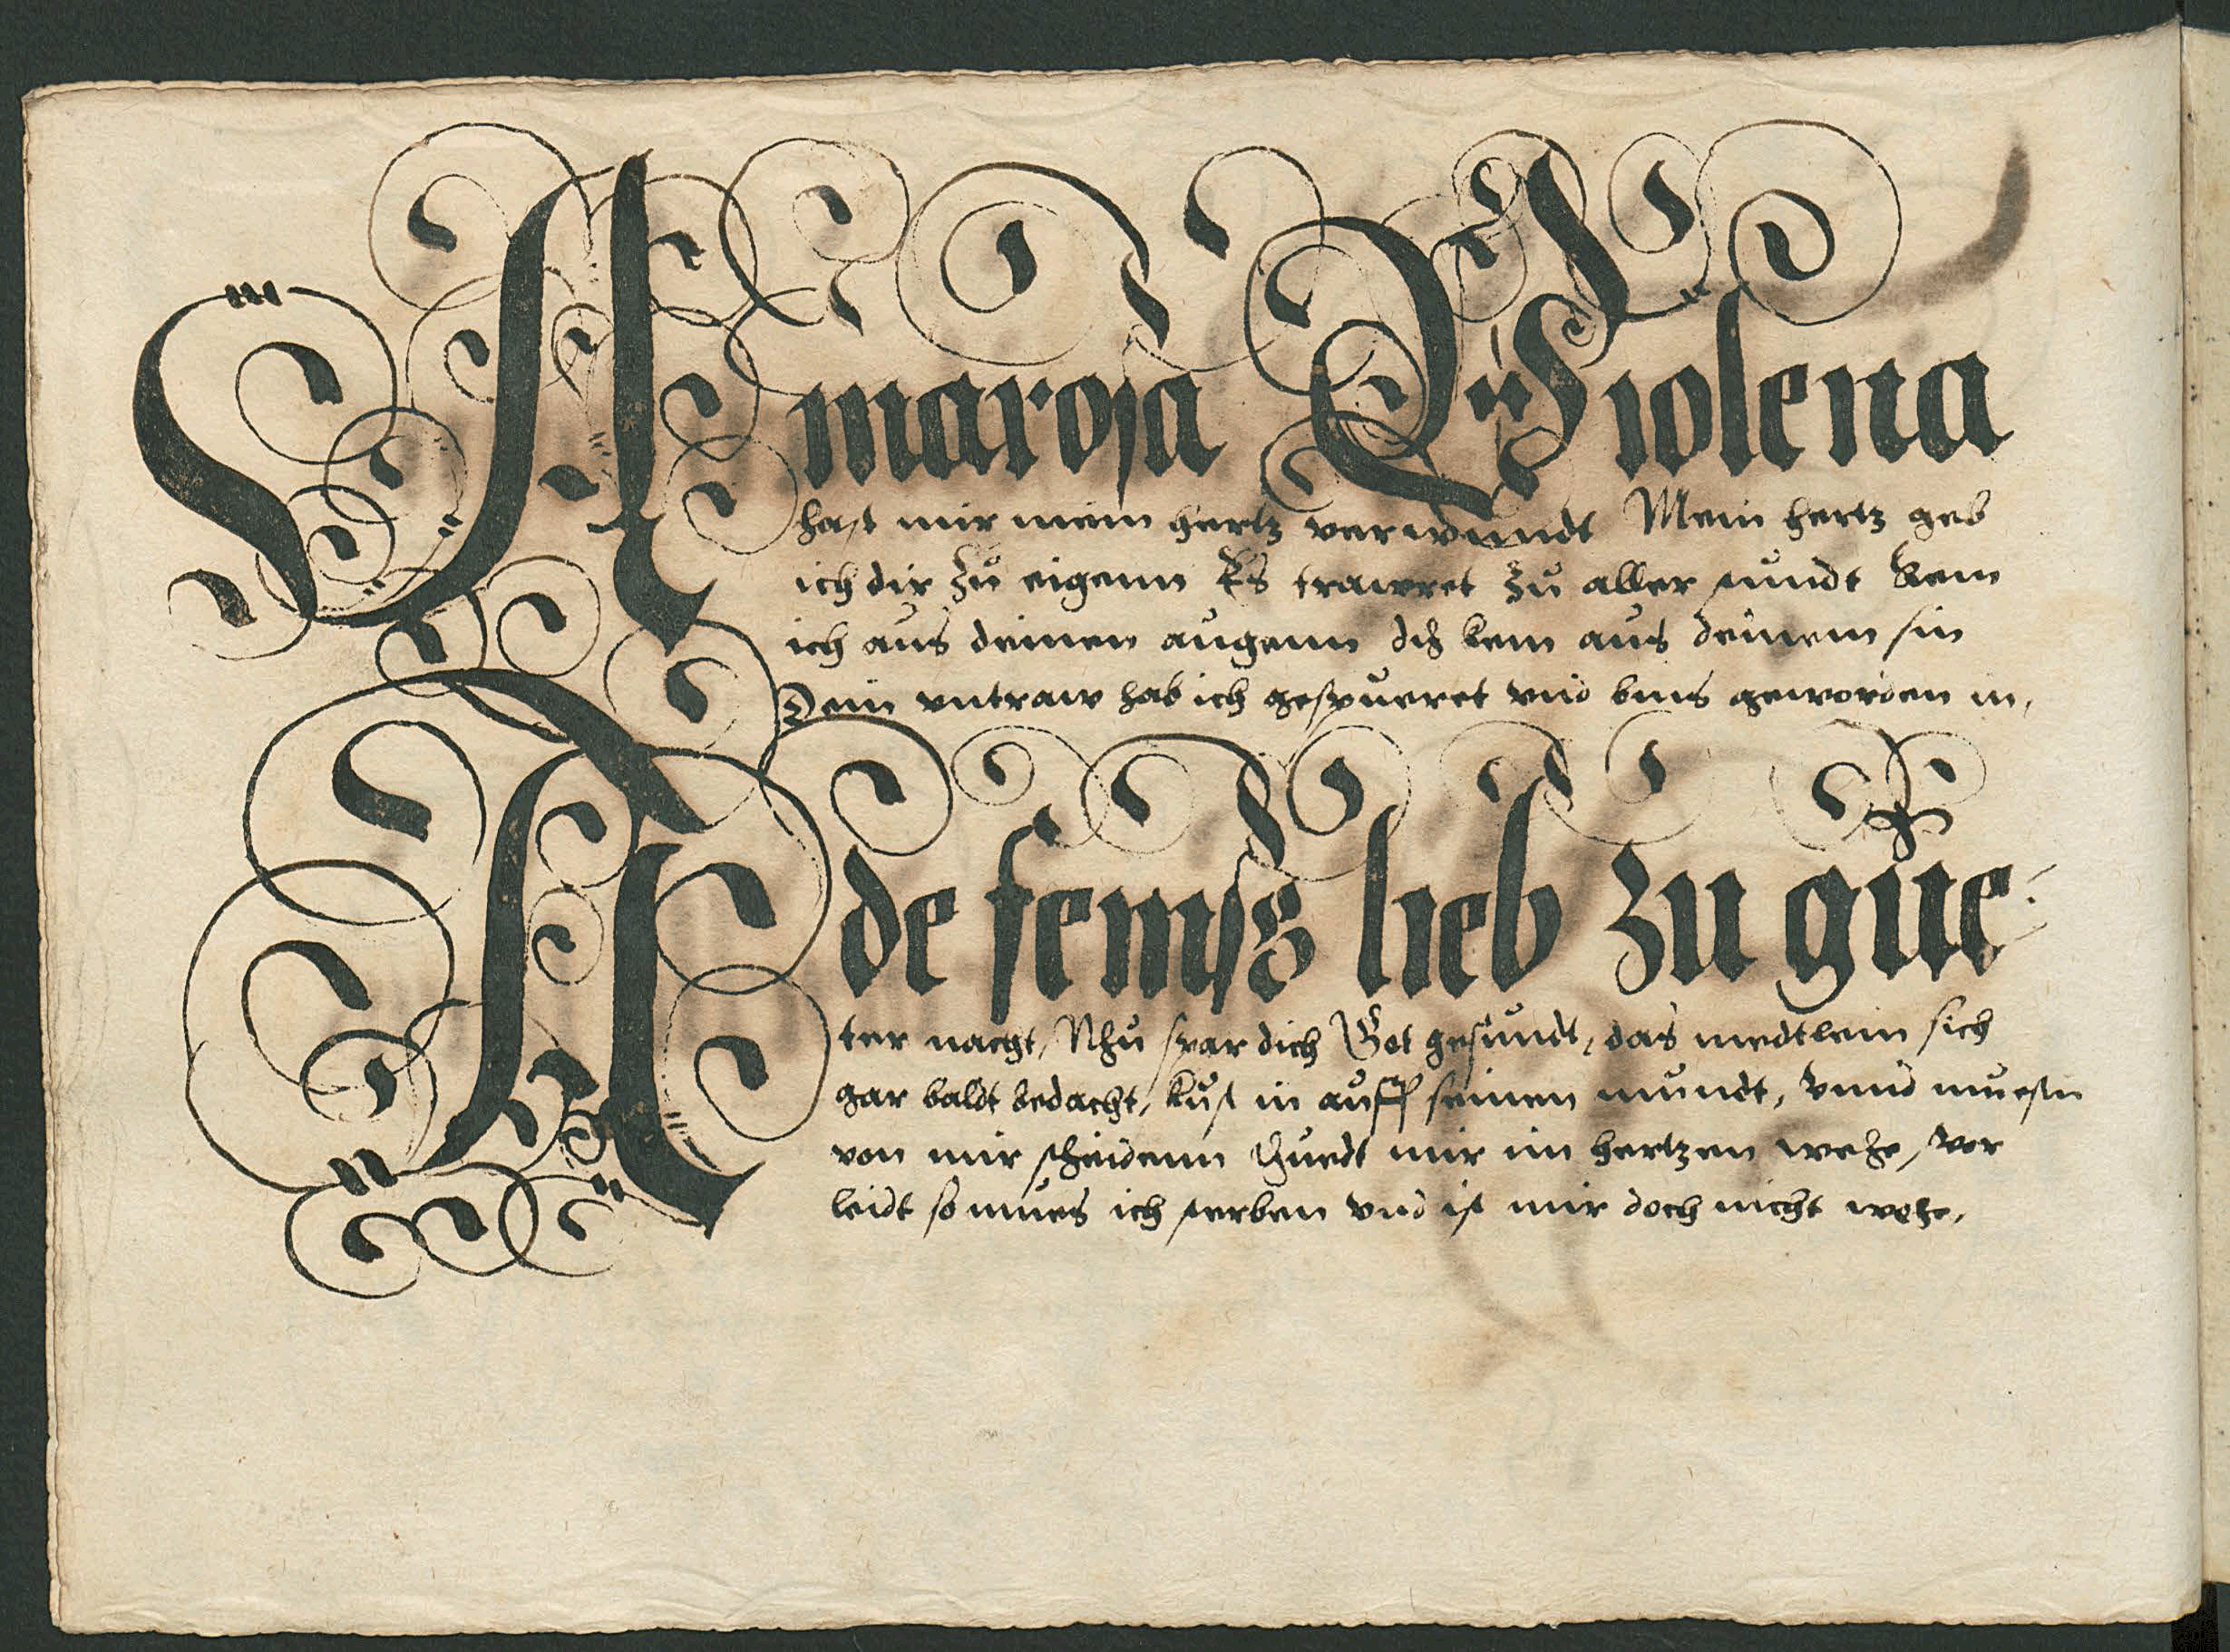 Amarosa Du Violena
hast mir mein hertz verwundt Mein hertz geb
ich dir zu eigenn Es trawret zu aller stundt kem
ich aus deinen augenn dis kem aus deinem sin
Dein untraw hab ich gespueret vnd bins geworden in,
Ade feins lieb zu gue-
ter nacht, Nhu spar dich Got gesundt, das medtlein sich
gar baldt bedacht, kust in auff seinen mundt, vnnd muesen
von mir scheidenn thuedt mir im hertzen wehe, vor
leidt so mues ich sterben vnd ist mir doch nicht wehe,